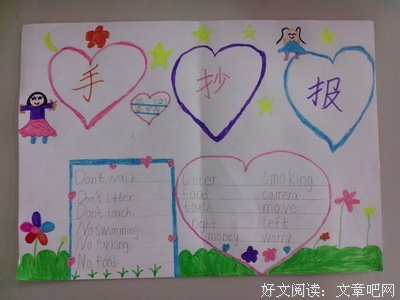 手 抄 报
Don't walk.
Don't litter.
Don't touch.
No swimming.
No Parking.
No food.
litter smoking
food camera
touch move
right left
money worry
好文阅读：文章吧网